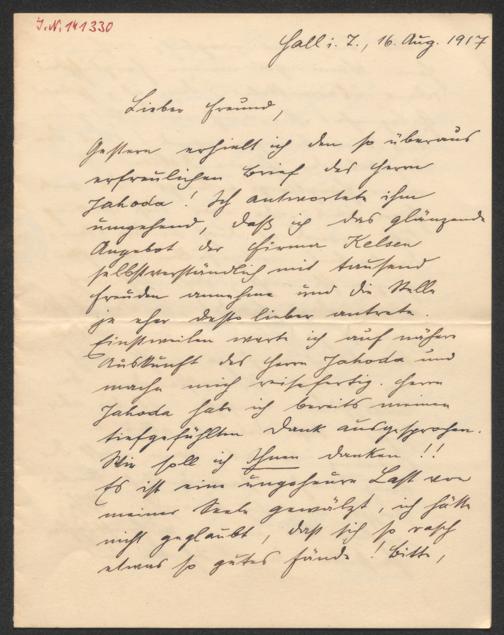 J.N. 141330
Hall i. T., 16. Aug. 1917
Lieber Freund,
Gestern erhielt ich den so überaus
erfreulichen Brief des Herrn
Jahoda! Ich antwortete ihm
umgehend, daß ich das glänzende
Angebot der Firma Kelsen
selbstverständlich mit tausend
Freuden annehme und die Stelle
je eher desto lieber antrete.
Einstweilen warte ich auf nähere
Auskunft des Herrn Jahoda und
mache mich reisefertig. Herrn
Jahoda habe ich bereits meinen
tiefgefühlten Dank ausgesprochen.
Wie soll ich Ihnen danken!!
Es ist eine ungeheure Last von
meiner Seele gewälzt, ich hätte
nicht geglaubt, daß sich so rasch
etwas so gutes fände! Bitte,